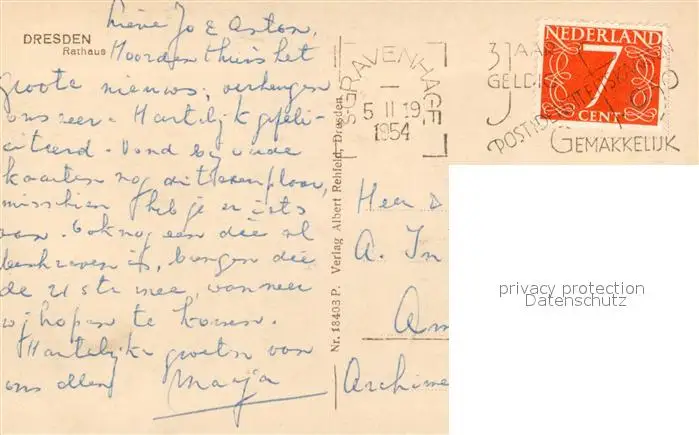 DRESDEN
Rathaus
Lieve Jo & Anton,
Hoorden thuis het
groote nieuws, verheugen
ons zeer. Hartelijk gefeli-
citeerd. Vond bij oude
kaarten nog dit exemplaar,
misschien heb je er iets
aan. Ook nog een die al
beschreven is, brengen die
de mee, wanneer
wij hopen te komen.
Hartelijke groeten van
ons allen Marja
Nr. 18403 P. Verlag Albert Rehfeld, Dresden
'S GRAVENHAGE
5 II 19
1954
3 JAAR
GELDIG
POSTIDENTITEITSKAART
GEMAKKELIJK
NEDERLAND
7
CENT
Heer
A. In
Am
Archime
privacy protection
Datenschutz